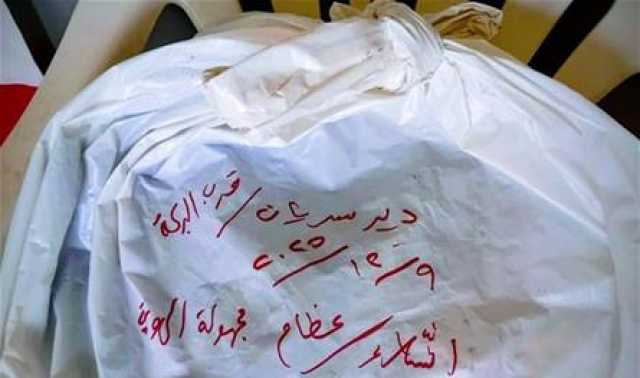 دير سريان / قرب البركة
٢٠٢٥/١٢/٩
أشلاء / عظام مجهولة الهوية